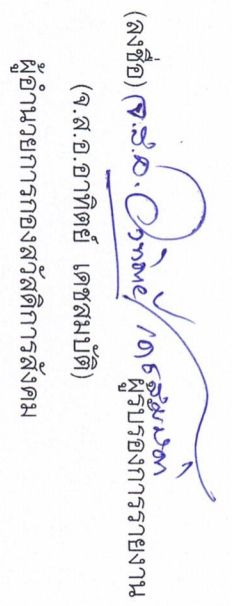 (ลงชื่อ) จ.ส.อ. อาทิตย์ เดชสมบัติ ผู้รับรองการรายงาน
(จ.ส.อ.อาทิตย์ เดชสมบัติ)
ผู้อำนวยการกองสวัสดิการสังคม